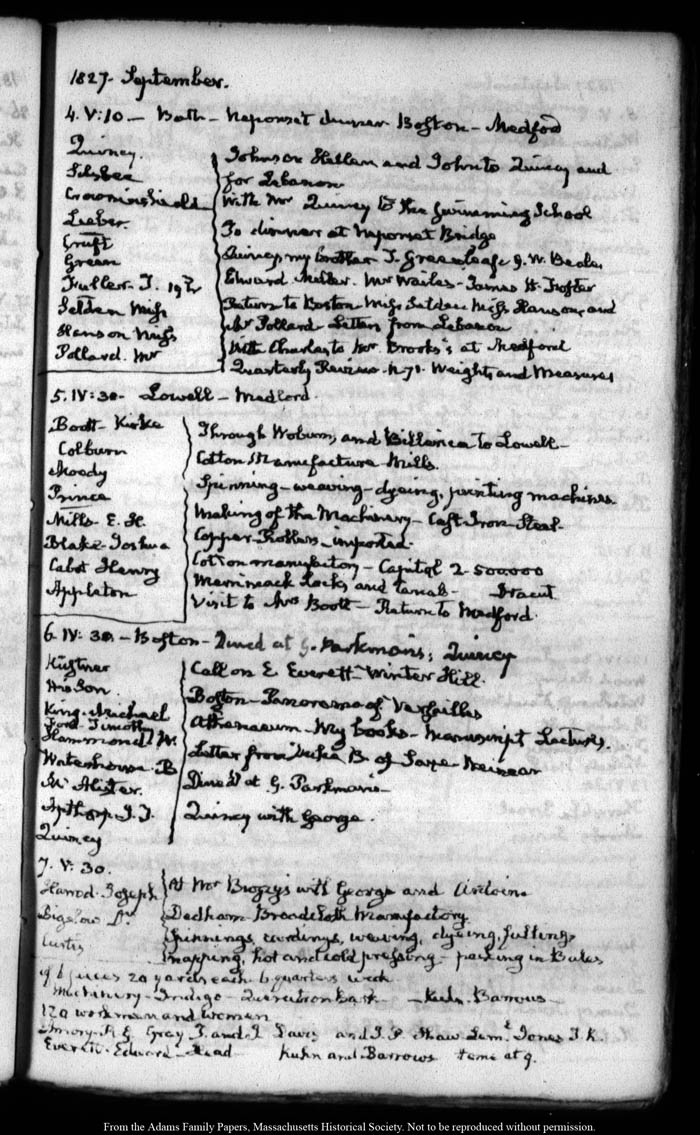 1827. September.
4. V:10 — Bath — Neponset dinner Boston — Medford
Quincy.
Silsbee
Crowninshield
Lieber
Cruft
Green
Fuller. T.
Selden Miss
Hanson Miss
Pollard. Mr
Johnson Hellen and John to Quincy and
for Lebanon
With Mr Quincy to the Swimming School
To dinner at Neponset Bridge
Quincy my brother J. Greenleaf G. W. Beale,
Edward Miller. Mr Wailes — James H. Foster
Return to Boston Miss Selden Miss Hanson, and
Mr Pollard Letters from Lebanon
With Charles to Mr Brooks's at Medford
Quarterly Review. N. 71. Weights and Measures
5. IV:30. Lowell — Medford.
Boott Kirke
Colburn
Moody
Prince
Mills. E. H.
Blake Joshua
Cabot Henry
Appleton
Through Woburn, and Billerica to Lowell —
Cotton Manufacture Mills.
Spinning — weaving — dyeing, printing machines.
Making of the Machinery — Cast Iron — Steel.
Copper Rollers — imported.
Cotton manufactory — Capital 2-500000
Merrimack Locks and Canals — Dracut
Visit to Mrs Boott — Return to Medford.
6. IV:30. — Boston — Dined at G. Parkman's; Quincy
Küstner
His Son.
King. Michael
Ford. Timothy
Hammond W.
Waterhouse. B
McAlister.
Apthorp. J. T.
Quincy
Call on E Everett — Winter Hill.
Boston — Panorama of Versailles
Athenaeum — My books — Manuscript Lectures.
Letter from Duke B. of Saxe-Weimar
Dined at G. Parkman's —
Quincy with George.
7. V:30.
Harrod. Joseph
Bigelow Dr
Curtis
At Mr Bussey's with George and
Dedham Broadcloth Manufactory
Spinnings, cardings, weaving, dyeing, fulling,
napping, hot and cold pressing — packing in Bales
of 6 pieces 20 yards each 6 quarters wide
Machinery — Indigo — Quercitron bark — Kuhn. Barrows —
120 workmen and women
Emory. R. G. Gray T. and I Davis and J. P. Shaw Jones T. K.
Everett. Edward — Head — Kuhn and Barrows Home at 9.
From the Adams Family Papers, Massachusetts Historical Society. Not to be reproduced without permission.